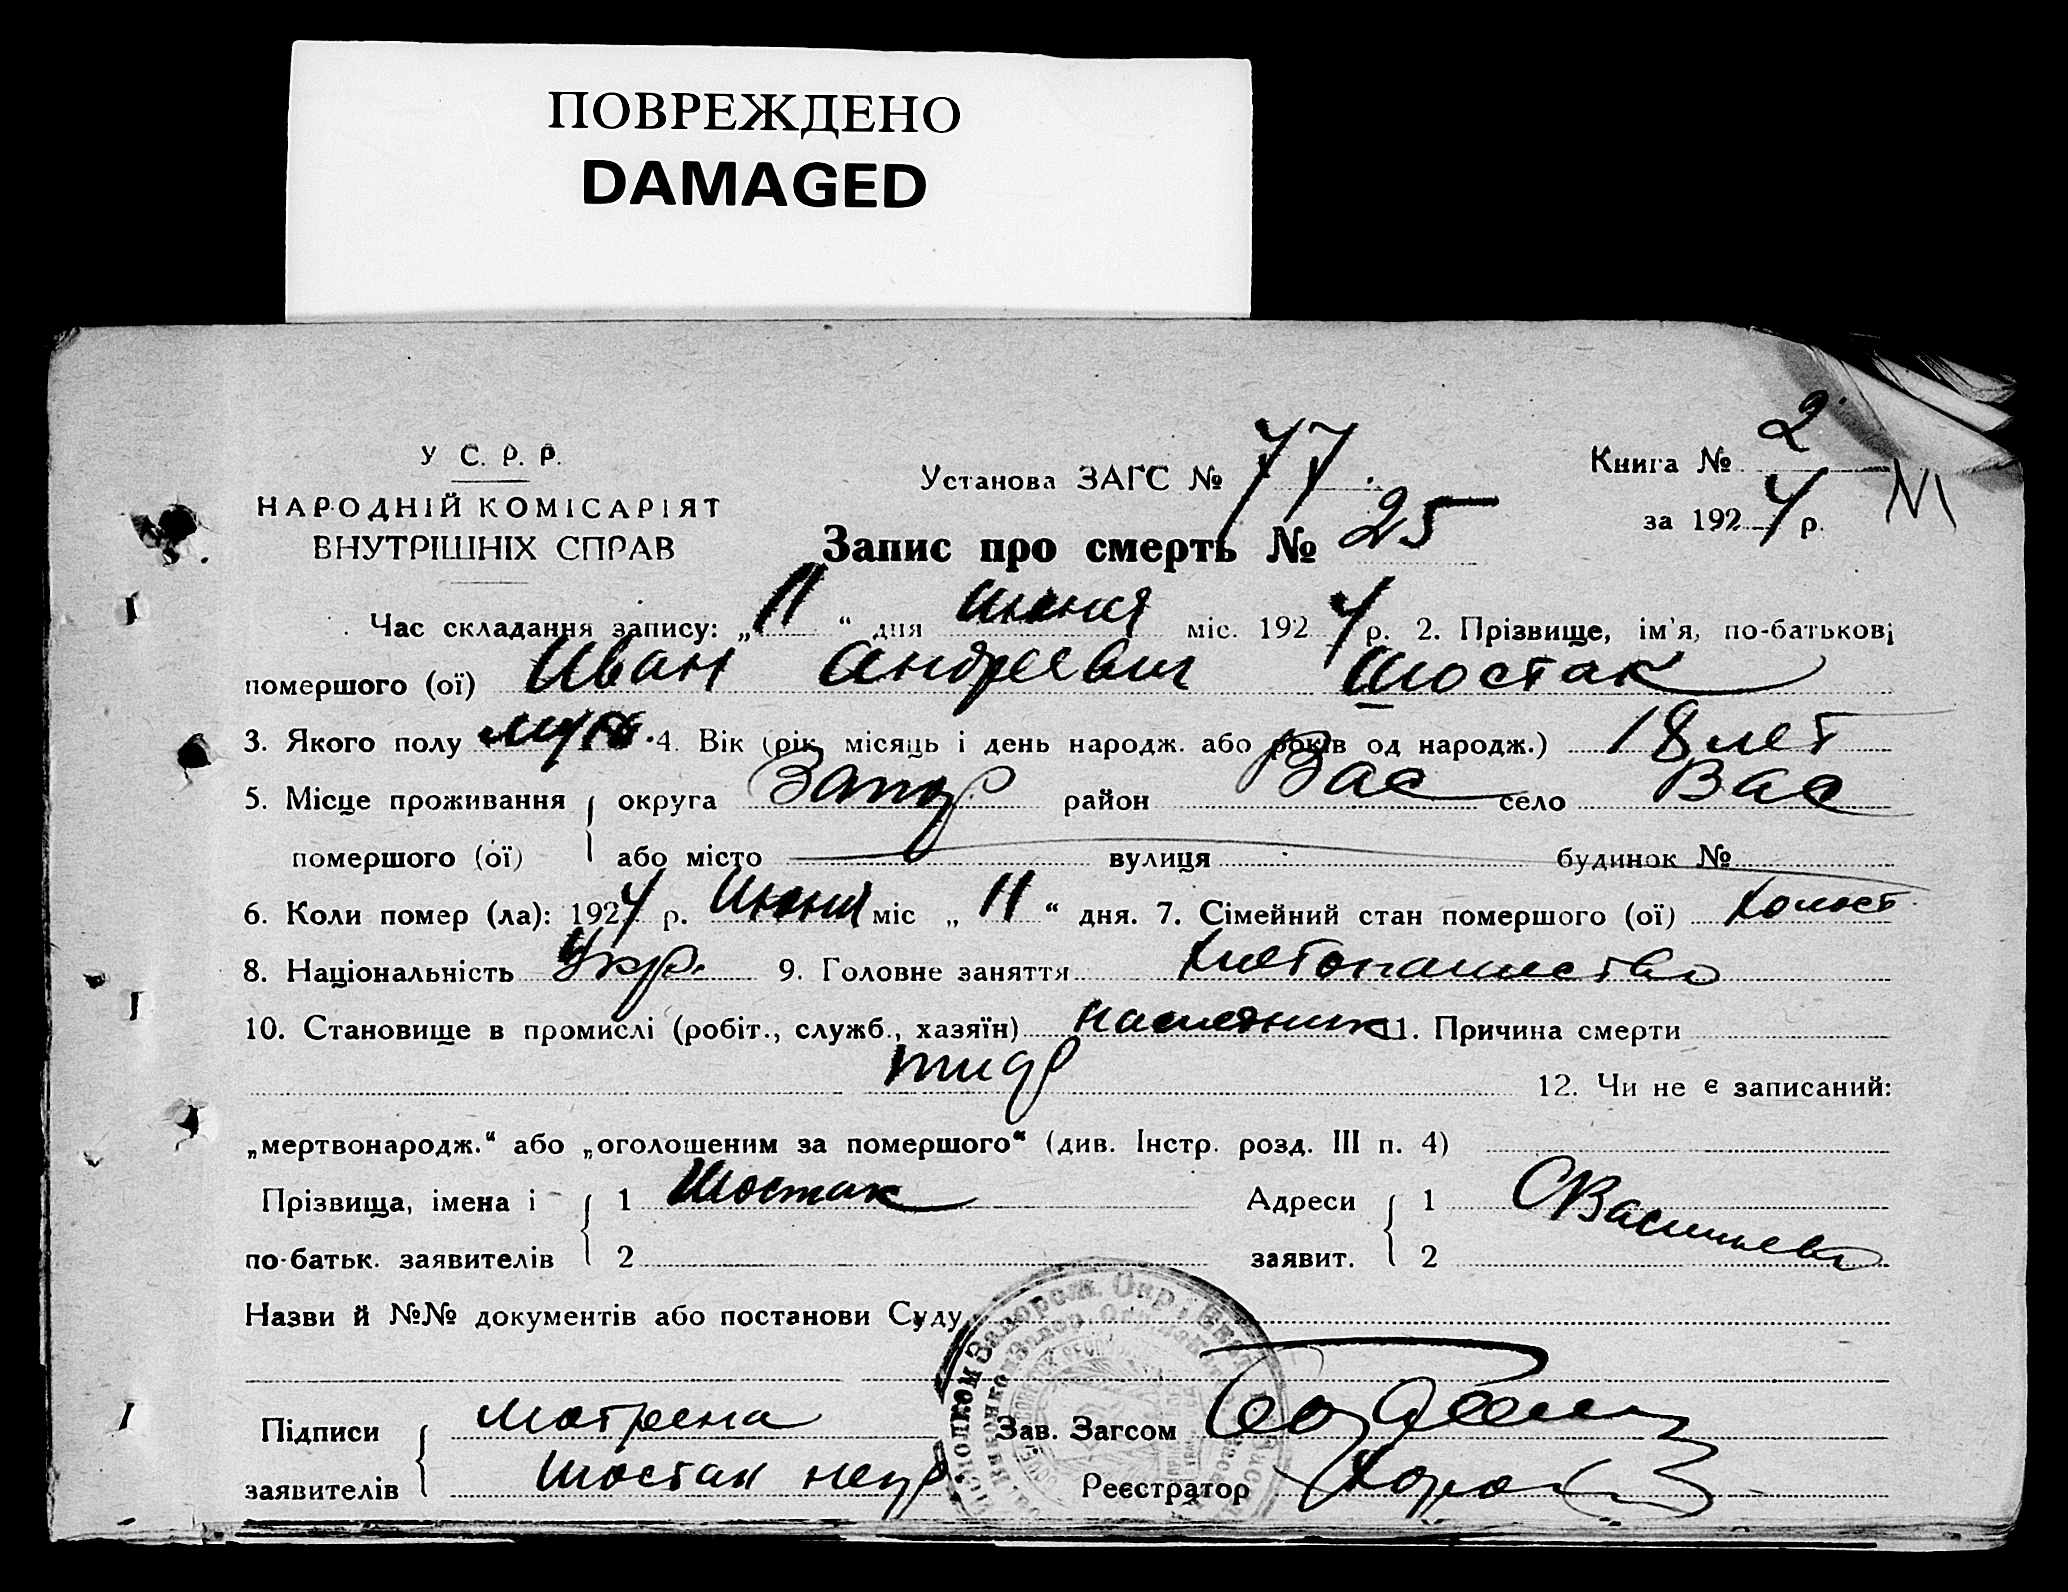 ПОВРЕЖДЕНО
DAMAGED
У С. Р. Р.
НАРОДНІЙ КОМІСАРІЯТ
ВНУТРІШНІХ СПРАВ
Установа ЗАГС № 77
Запис про смерть № 25
Книга № 2
за 1924 р.
Час складання запису: „11“ дня Июня міс. 1924 р. 2. Прізвище, ім'я, по-батькові
помершого (ої) Иван Андреевич Шостак
3. Якого полу муж. 4. Вік (рік, місяць і день народж. або років од народж.) 18 лет
5. Місце проживання округа Запор район Вас село Вас
помершого (ої) або місто вулиця будинок №
6. Коли помер (ла): 1924 р. Июня міс „11“ дня. 7. Сімейний стан помершого (ої) холост
8. Національність Укр. 9. Головне заняття Хлебопашество
10. Становище в промислі (робіт., служб., хазяїн) 11. Причина смерти
12. Чи не є записаний:
„мертвонародж.“ або „оголошеним за помершого“ (див. Інстр. розд. III п. 4)
Прізвища, імена і 1 Шостак Адреси 1 С Васильево
по-батьк. заявителів 2 заявит. 2
Назви й №№ документів або постанови Суду
Підписи Матрена Зав. Загсом
заявителів Шостак негр Реєстратор